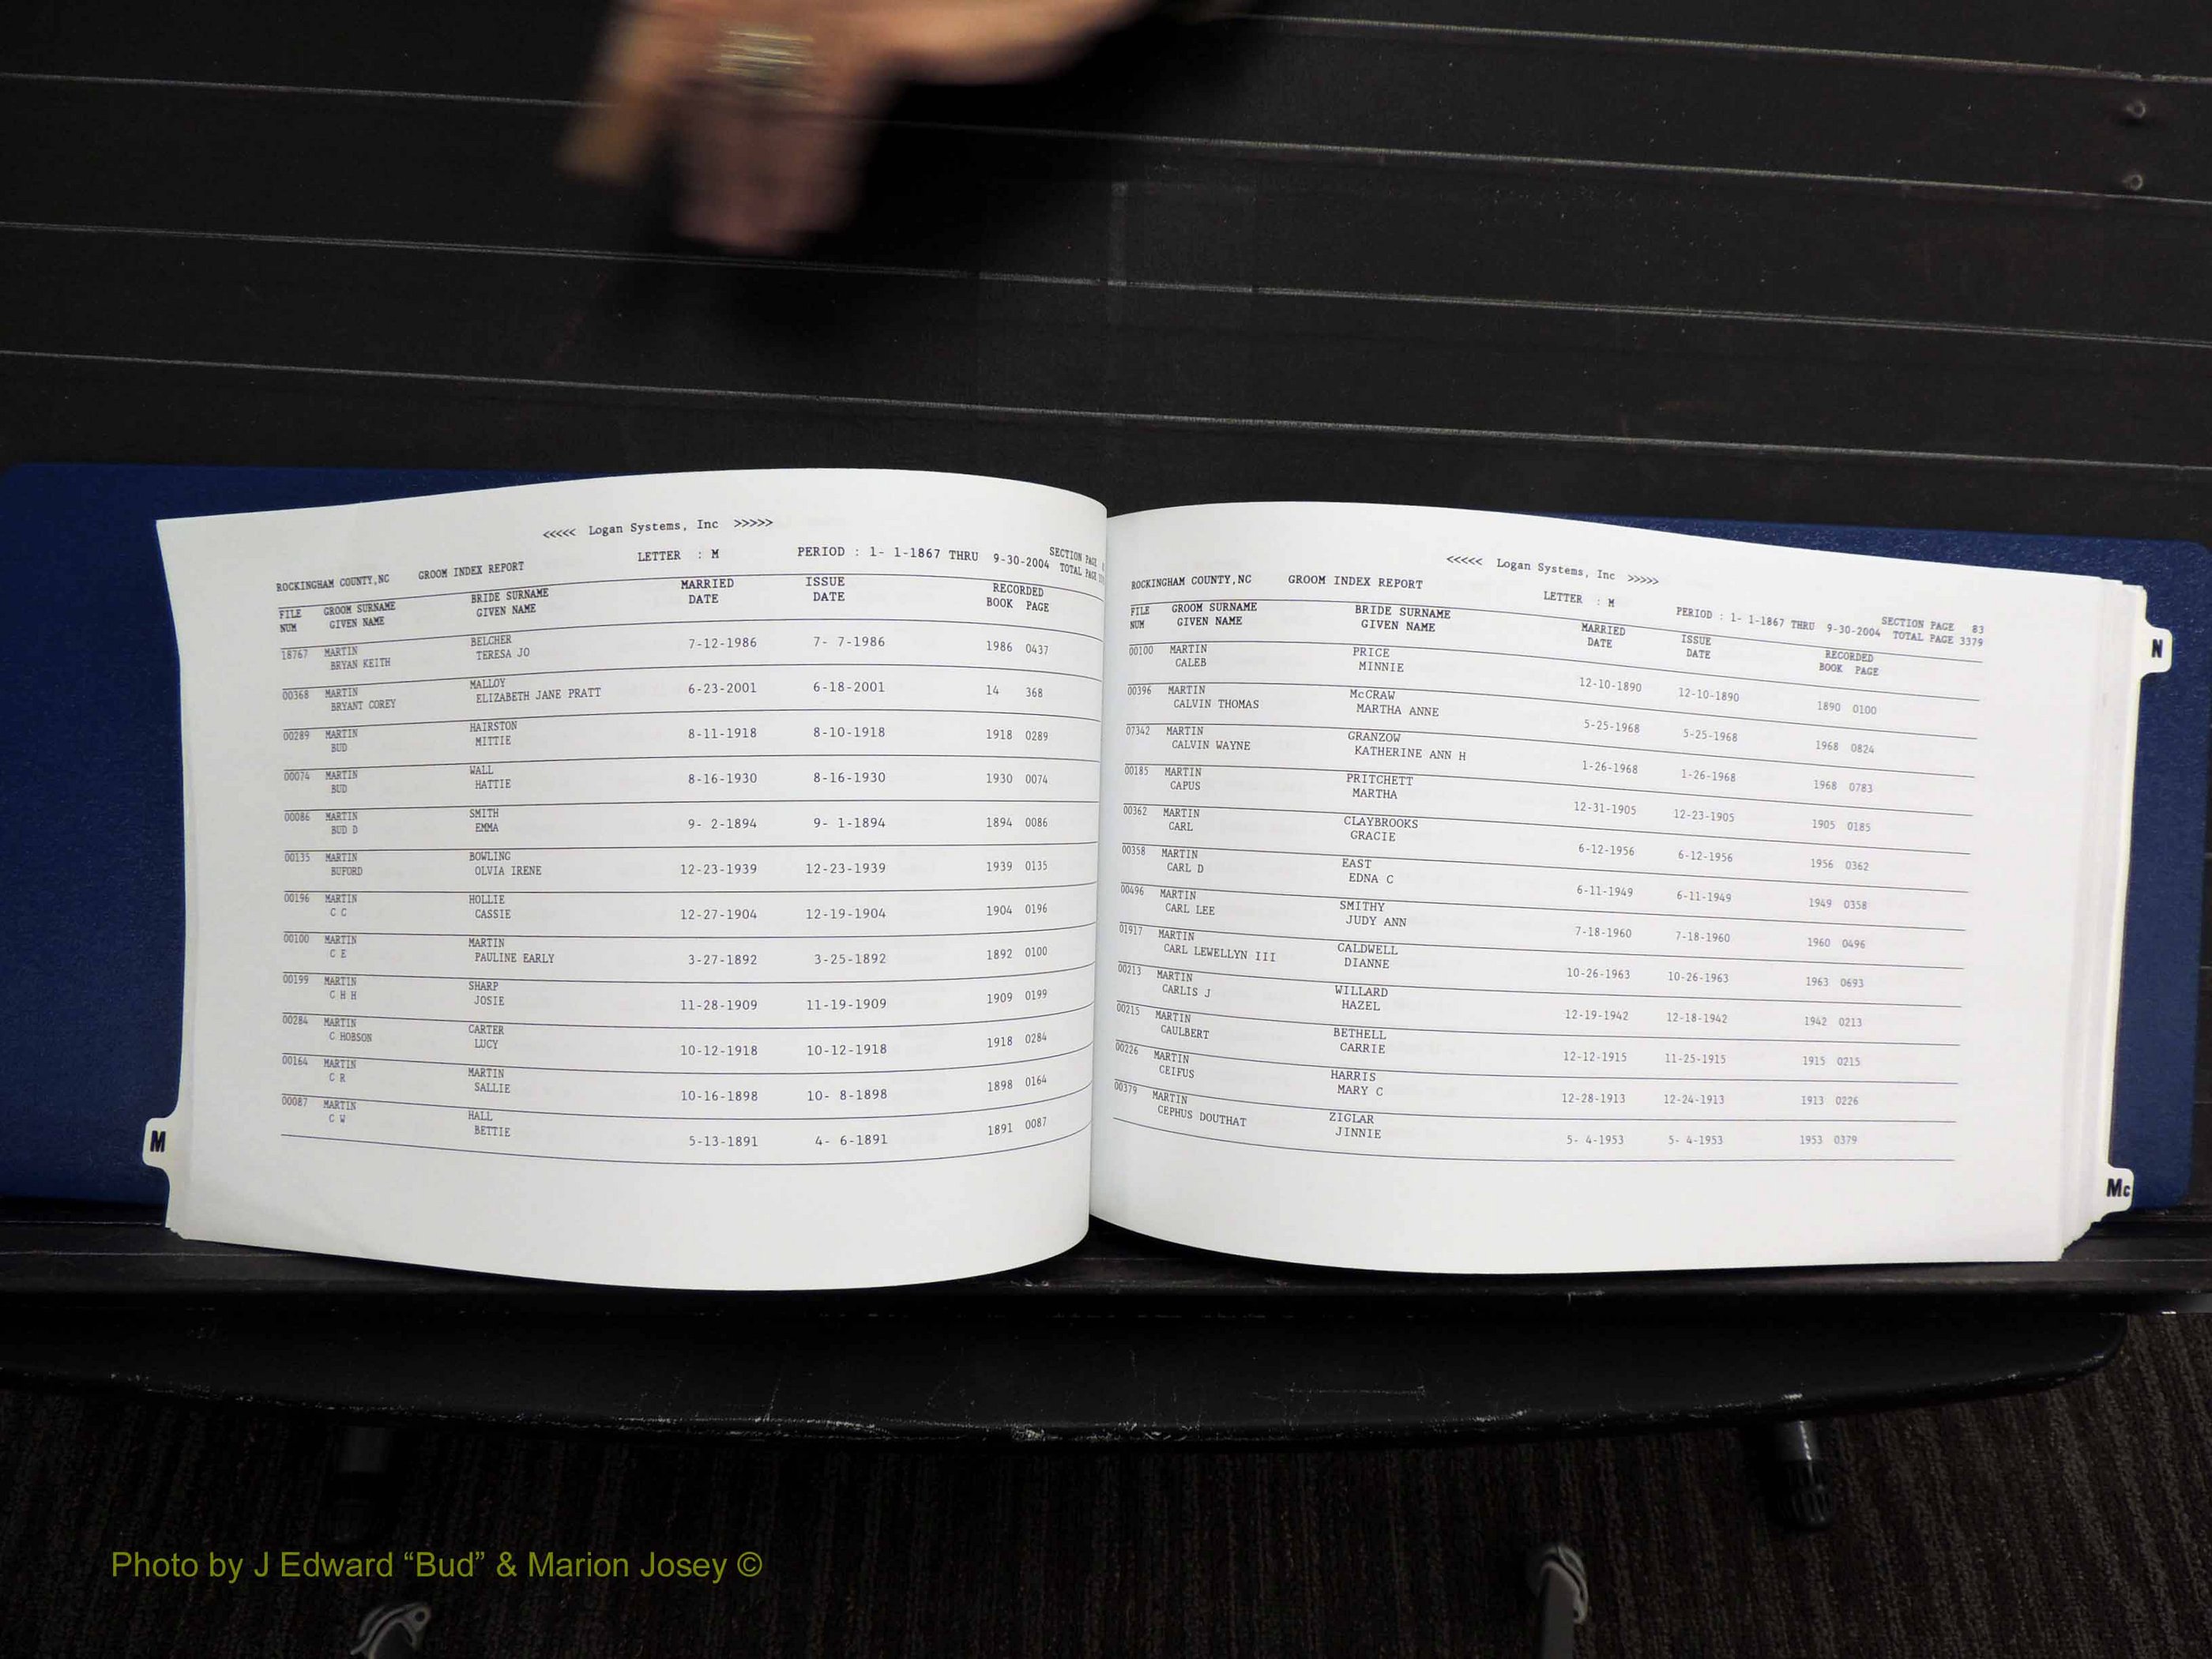 <<<<< Logan Systems, Inc >>>>>
ROCKINGHAM COUNTY,NC GROOM INDEX REPORT LETTER : M PERIOD : 1- 1-1867 THRU 9-30-2004 SECTION PAGE
TOTAL PAGE
FILE GROOM SURNAME BRIDE SURNAME MARRIED ISSUE RECORDED
NUM GIVEN NAME GIVEN NAME DATE DATE BOOK PAGE
18767 MARTIN BELCHER 7-12-1986 7- 7-1986 1986 0437
BRYAN KEITH TERESA JO
00368 MARTIN MALLOY 6-23-2001 6-18-2001 14 368
BRYANT COREY ELIZABETH JANE PRATT
00289 MARTIN HAIRSTON 8-11-1918 8-10-1918 1918 0289
BUD MITTIE
00074 MARTIN WALL 8-16-1930 8-16-1930 1930 0074
BUD HATTIE
00086 MARTIN SMITH 9- 2-1894 9- 1-1894 1894 0086
BUD D EMMA
00135 MARTIN BOWLING 12-23-1939 12-23-1939 1939 0135
BUFORD OLVIA IRENE
00196 MARTIN HOLLIE 12-27-1904 12-19-1904 1904 0196
C C CASSIE
00100 MARTIN MARTIN 3-27-1892 3-25-1892 1892 0100
C E PAULINE EARLY
00199 MARTIN SHARP 11-28-1909 11-19-1909 1909 0199
C H H JOSIE
00284 MARTIN CARTER 10-12-1918 10-12-1918 1918 0284
C HOBSON LUCY
00164 MARTIN MARTIN 10-16-1898 10- 8-1898 1898 0164
C R SALLIE
00087 MARTIN HALL 5-13-1891 4- 6-1891 1891 0087
C W BETTIE
M
<<<<< Logan Systems, Inc >>>>>
ROCKINGHAM COUNTY,NC GROOM INDEX REPORT LETTER : M PERIOD : 1- 1-1867 THRU 9-30-2004 SECTION PAGE 83
TOTAL PAGE 3379
FILE GROOM SURNAME BRIDE SURNAME MARRIED ISSUE RECORDED
NUM GIVEN NAME GIVEN NAME DATE DATE BOOK PAGE
00100 MARTIN PRICE 12-10-1890 12-10-1890 1890 0100
CALEB MINNIE
00396 MARTIN McCRAW 5-25-1968 5-25-1968 1968 0824
CALVIN THOMAS MARTHA ANNE
07342 MARTIN GRANZOW 1-26-1968 1-26-1968 1968 0783
CALVIN WAYNE KATHERINE ANN H
00185 MARTIN PRITCHETT 12-31-1905 12-23-1905 1905 0185
CAPUS MARTHA
00362 MARTIN CLAYBROOKS 6-12-1956 6-12-1956 1956 0362
CARL GRACIE
00358 MARTIN EAST 6-11-1949 6-11-1949 1949 0358
CARL D EDNA C
00496 MARTIN SMITHY 7-18-1960 7-18-1960 1960 0496
CARL LEE JUDY ANN
01917 MARTIN CALDWELL 10-26-1963 10-26-1963 1963 0693
CARL LEWELLYN III DIANNE
00213 MARTIN WILLARD 12-19-1942 12-18-1942 1942 0213
CARLIS J HAZEL
00215 MARTIN BETHELL 12-12-1915 11-25-1915 1915 0215
CAULBERT CARRIE
00226 MARTIN HARRIS 12-28-1913 12-24-1913 1913 0226
CEIFUS MARY C
00379 MARTIN ZIGLAR 5- 4-1953 5- 4-1953 1953 0379
CEPHUS DOUTHAT JINNIE
N
Mc
Photo by J Edward “Bud” & Marion Josey ©